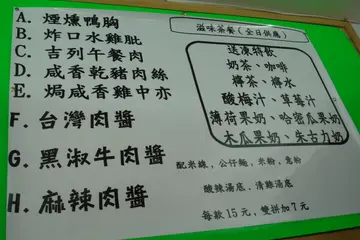 A. 煙燻鴨胸
B. 炸口水雞肶
C. 吉列午餐肉
D. 咸香乾豬肉絲
E. 焗咸香雞中亦
F. 台灣肉醬
G. 黑淑牛肉醬
H. 麻辣肉醬
滋味茶餐(全日供應)
送凍特飲
奶茶、咖啡
檸茶、檸水
酸梅汁、草莓汁
薄荷果奶、哈密瓜果奶
木瓜果奶、朱古力奶
配米線，公仔麵，米粉，意粉
酸辣湯底、清雞湯底
每款15元，雙拼加7元